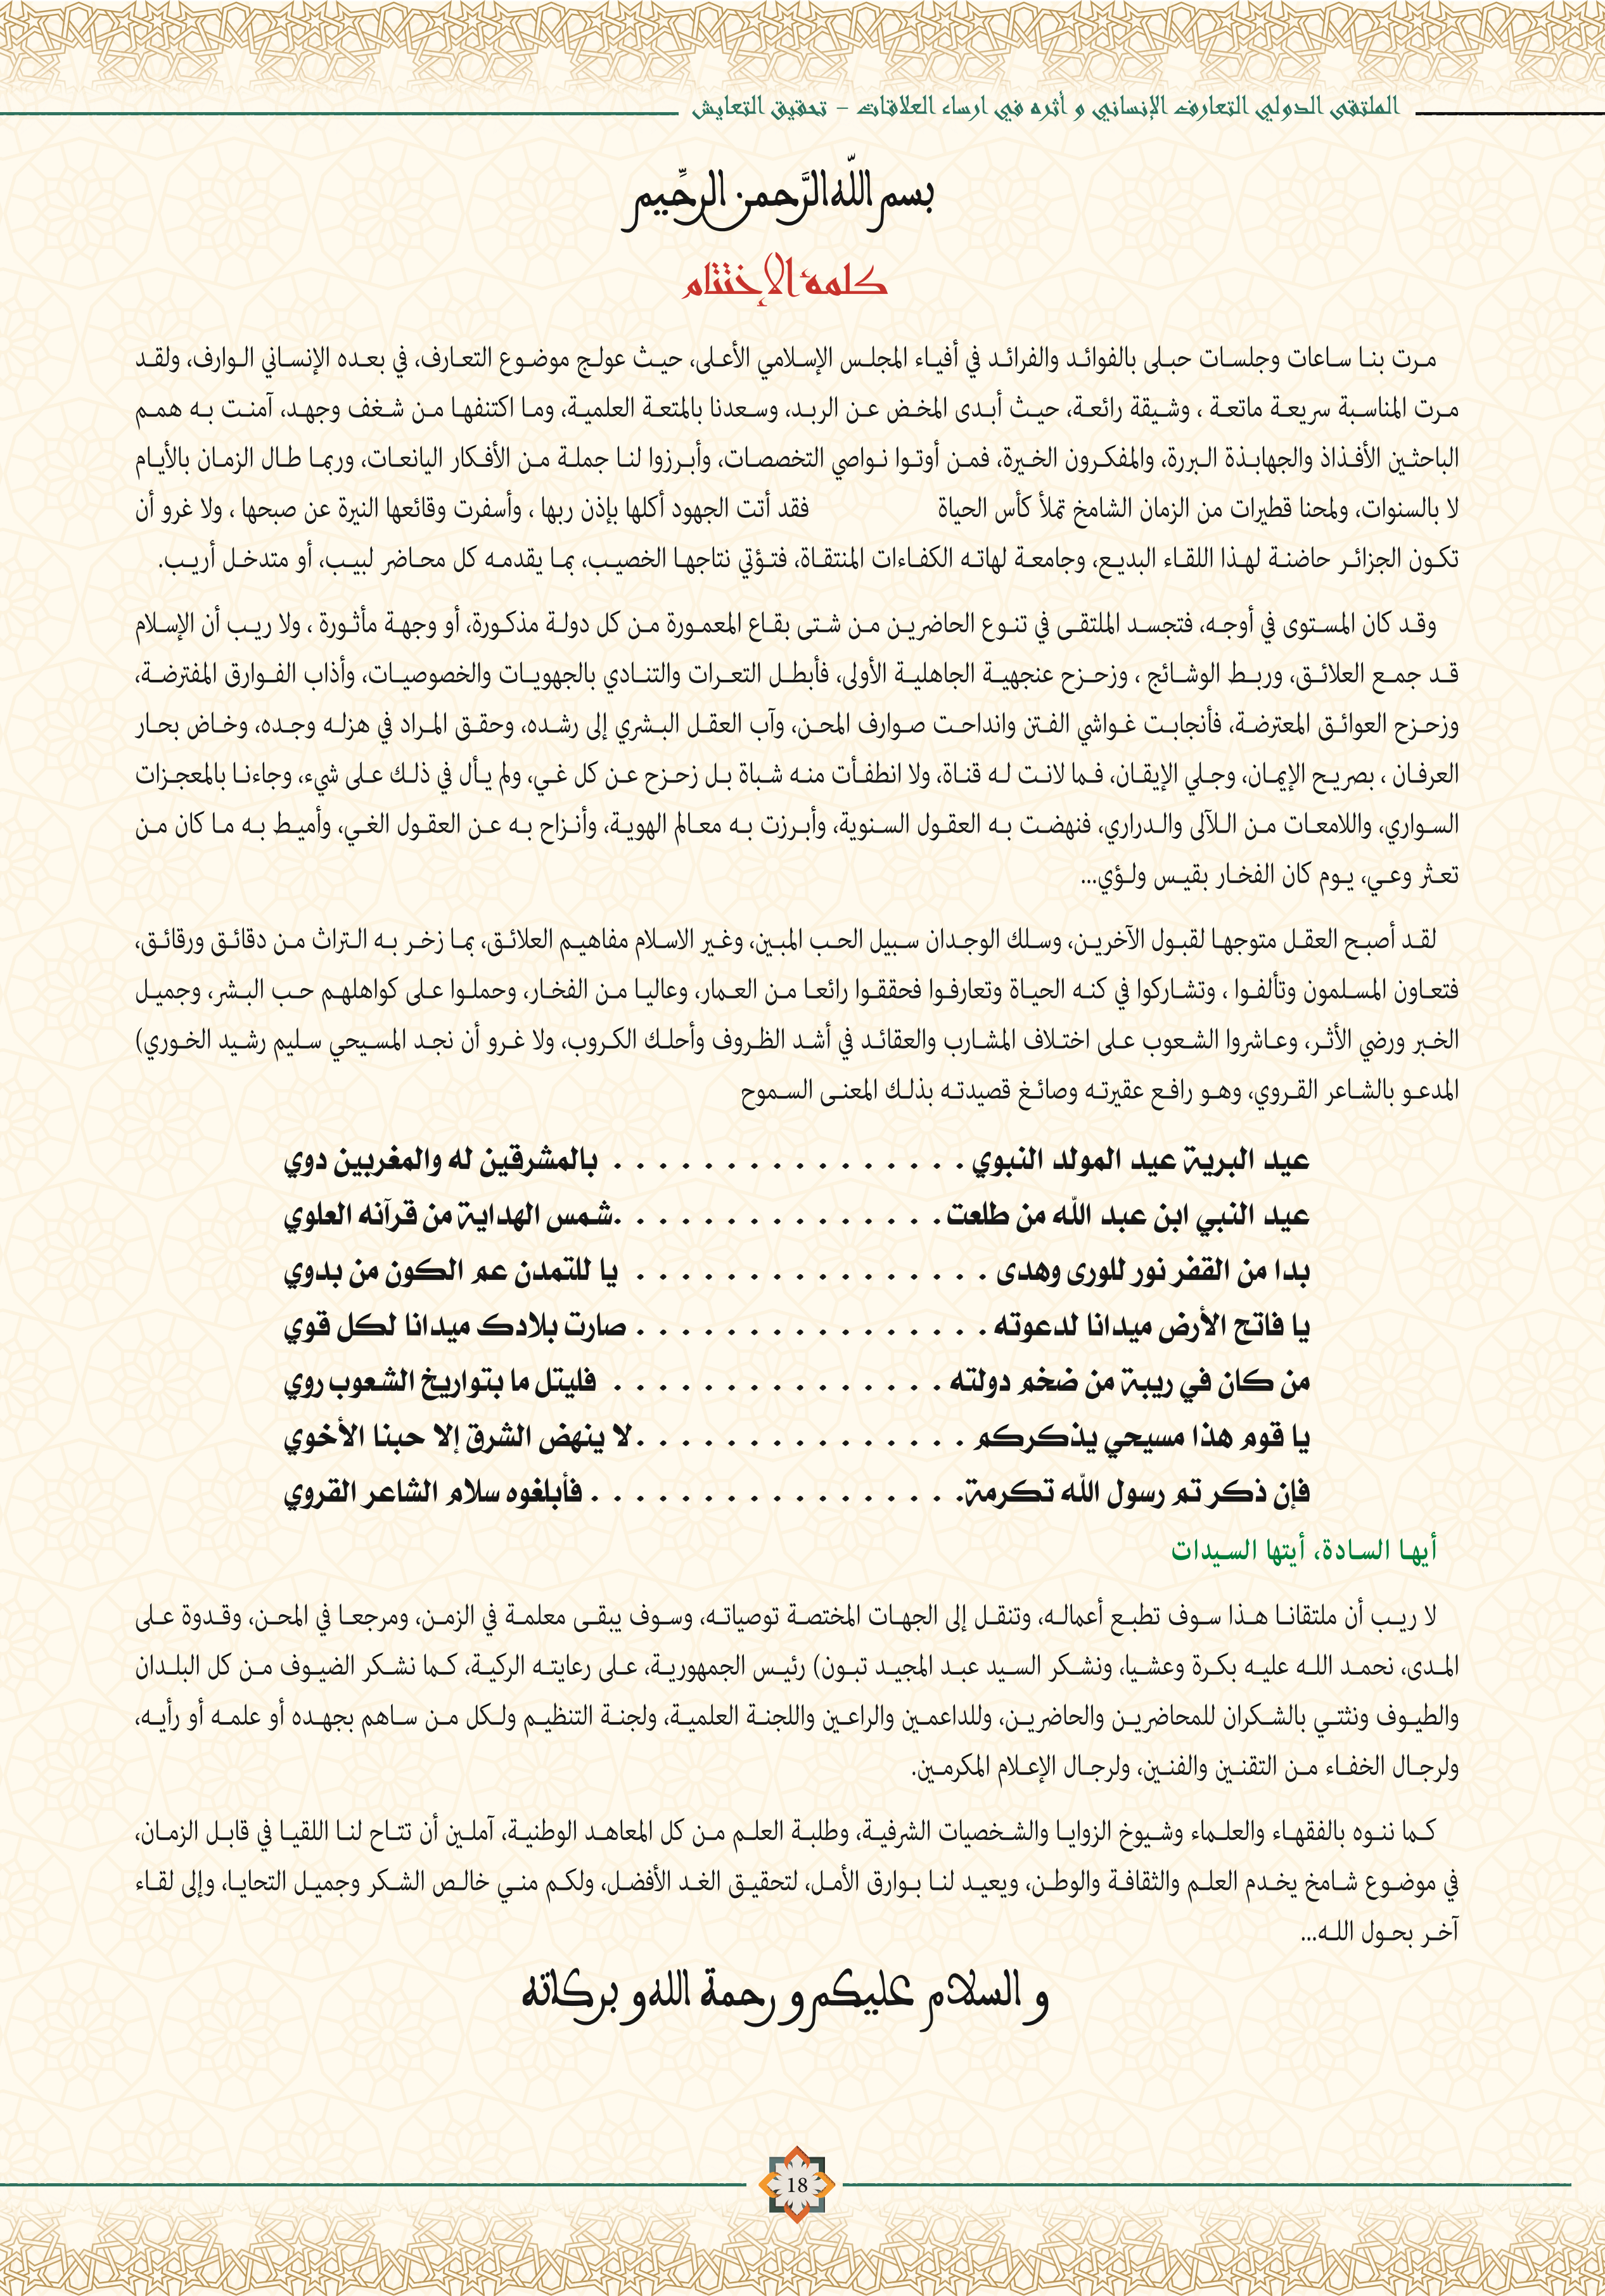 الملتقى الدولي التعارف الإنساني و أثره في ارساء العلاقات - تحقيق التعايش
بسم اللّه الرَّحمن الرحِّيم
كلمة الإختتام
مرت بنا ساعات وجلسات حبلى بالفوائد والفرائد في أفياء المجلس الإسلامي الأعلى، حيث عولج موضوع التعارف، في بعده الإنساني الوارف، ولقد
مرت المناسبة سريعة ماتعة ، وشيقة رائعة، حيث أبدى المخض عن الربد، وسعدنا بالمتعة العلمية، وما اكتنفها من شغف وجهد، آمنت به همم
الباحثين الأفذاذ والجهابذة البررة، والمفكرون الخيرة، فمن أوتوا نواصي التخصصات، وأبرزوا لنا جملة من الأفكار اليانعات، وربما طال الزمان بالأيام
لا بالسنوات، ولمحنا قطيرات من الزمان الشامخ تملأ كأس الحياة فقد أتت الجهود أكلها بإذن ربها ، وأسفرت وقائعها النيرة عن صبحها ، ولا غرو أن
تكون الجزائر حاضنة لهذا اللقاء البديع، وجامعة لهاته الكفاءات المنتقاة، فتؤتي نتاجها الخصيب، بما يقدمه كل محاضر لبيب، أو متدخل أريب.
وقد كان المستوى في أوجه، فتجسد الملتقى في تنوع الحاضرين من شتى بقاع المعمورة من كل دولة مذكورة، أو وجهة مأثورة ، ولا ريب أن الإسلام
قد جمع العلائق، وربط الوشائج ، وزحزح عنجهية الجاهلية الأولى، فأبطل التعرات والتنادي بالجهويات والخصوصيات، وأذاب الفوارق المفترضة،
وزحزح العوائق المعترضة، فأنجابت غواشي الفتن وانداحت صوارف المحن، وآب العقل البشري إلى رشده، وحقق المراد في هزله وجده، وخاض بحار
العرفان ، بصريح الإيمان، وجلي الإيقان، فما لانت له قناة، ولا انطفأت منه شباة بل زحزح عن كل غي، ولم يأل في ذلك على شيء، وجاءنا بالمعجزات
السواري، واللامعات من اللآلى والدراري، فنهضت به العقول السنوية، وأبرزت به معالم الهوية، وأنزاح به عن العقول الغي، وأميط به ما كان من
تعثر وعي، يوم كان الفخار بقيس ولؤي...
لقد أصبح العقل متوجها لقبول الآخرين، وسلك الوجدان سبيل الحب المبين، وغير الاسلام مفاهيم العلائق، بما زخر به التراث من دقائق ورقائق،
فتعاون المسلمون وتألفوا ، وتشاركوا في كنه الحياة وتعارفوا فحققوا رائعا من العمار، وعاليا من الفخار، وحملوا على كواهلهم حب البشر، وجميل
الخبر ورضي الأثر، وعاشروا الشعوب على اختلاف المشارب والعقائد في أشد الظروف وأحلك الكروب، ولا غرو أن نجد المسيحي سليم رشيد الخوري)
المدعو بالشاعر القروي، وهو رافع عقيرته وصائغ قصيدته بذلك المعنى السموح
عيد البرية عيد المولد النبوي . . . . . . . . . . . . . . . . بالمشرقين له والمغربين دوي
عيد النبي ابن عبد اللّه من طلعت. . . . . . . . . . . . . . .شمس الهداية من قرآنه العلوي
بدا من القفر نور للورى وهدى . . . . . . . . . . . . . . . . يا للتمدن عم الكون من بدوي
يا فاتح الأرض ميدانا لدعوته . . . . . . . . . . . . . . . . صارت بلادك ميدانا لكل قوي
من كان في ريبة من ضخم دولته . . . . . . . . . . . . . . . فليتل ما بتواريخ الشعوب روي
يا قوم هذا مسيحي يذكركم . . . . . . . . . . . . . . . .لا ينهض الشرق إلا حبنا الأخوي
فإن ذكر تم رسول اللّه تكرمة. . . . . . . . . . . . . . . . . فأبلغوه سلام الشاعر القروي
أيها السادة، أيتها السيدات
لا ريب أن ملتقانا هذا سوف تطبع أعماله، وتنقل إلى الجهات المختصة توصياته، وسوف يبقى معلمة في الزمن، ومرجعا في المحن، وقدوة على
المدى، نحمد الله عليه بكرة وعشيا، ونشكر السيد عبد المجيد تبون) رئيس الجمهورية، على رعايته الركية، كما نشكر الضيوف من كل البلدان
والطيوف ونثتي بالشكران للمحاضرين والحاضرين، وللداعمين والراعين واللجنة العلمية، ولجنة التنظيم ولكل من ساهم بجهده أو علمه أو رأيه،
ولرجال الخفاء من التقنين والفنين، ولرجال الإعلام المكرمين.
كما ننوه بالفقهاء والعلماء وشيوخ الزوايا والشخصيات الشرفية، وطلبة العلم من كل المعاهد الوطنية، آملين أن تتاح لنا اللقيا في قابل الزمان،
في موضوع شامخ يخدم العلم والثقافة والوطن، ويعيد لنا بوارق الأمل، لتحقيق الغد الأفضل، ولكم مني خالص الشكر وجميل التحايا، وإلى لقاء
آخر بحول الله...
و السلام عليكم و رحمة الله و بركاته
18